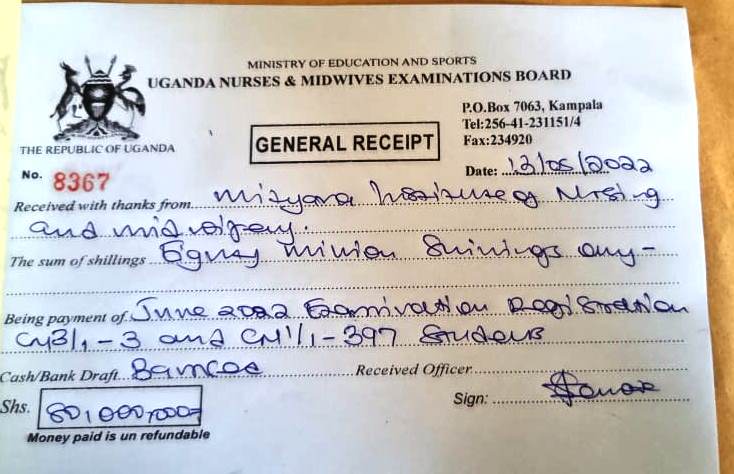 MINISTRY OF EDUCATION AND SPORTS
UGANDA NURSES & MIDWIVES EXAMINATIONS BOARD
P.O.Box 7063, Kampala
Tel:256-41-231151/4
Fax:234920
THE REPUBLIC OF UGANDA
GENERAL RECEIPT
No. 8367
Date: 13/05/2022
Received with thanks from Mityana Institute of Nursing
and midwifery.
The sum of shillings Eighty Million Shillings only-
Being payment of June 2022 Examination Registration
CM3/1-3 and CM1/1-397 Students
Cash/Bank Draft Received Officer
Sign:
Shs. 80,000,000=
Money paid is un refundable